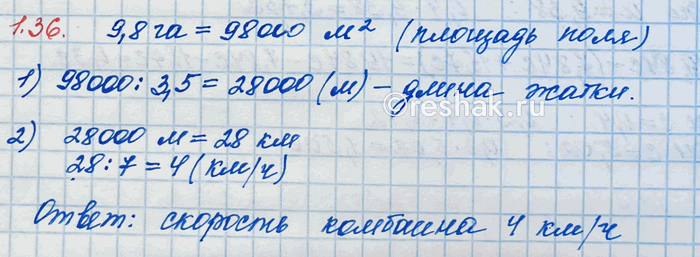 1.36. 9,8 га = 98000 м² (площадь поля)
1) 98000 : 3,5 = 28000 (м) - длина жатки.
©reshak.ru
2) 28000 м = 28 км
28 : 7 = 4 (км/ч)
Ответ: скорость комбаина 4 км/ч